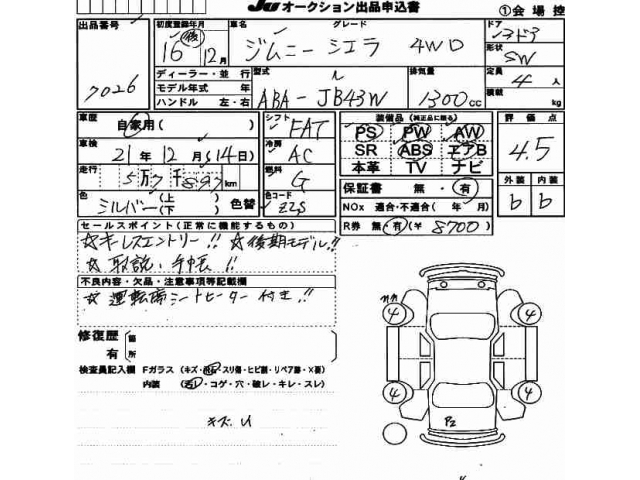 JU オークション出品申込書 ①会場控
出品番号 初度登録年月 車名 グレード ドア
7026 16 後 12月 ジムニー シエラ 4WD 3ドア
形状 SW
ディーラー・並行 型式 排気量 定員 4 人
モデル年式 年 ABA-JB43W 1300cc 積載 kg
ハンドル 左・右
車歴 自家用( ) シフト FAT 装備品(純正品に限る) 評価点
PS PW AW 4.5
車検 21年12月(14日) 冷房 AC SR ABS エアB
本革 TV ナビ
走行 5万7千897km 燃料 G 外装 内装
保証書 無・有 b b
色 シルバー(上)(下) 色替 色コード Z2S NOx 適合・不適合( 年 月)
R券 無・有(¥ 8700 )
セールスポイント(正常に機能するもの)
☆キーレスエントリー!! ☆後期モデル!!
☆取説・手帳!!
不良内容・欠品・注意事項等記載欄
☆運転席シートヒーター付き!!
修復歴 箇
有 所
検査員記入欄 Fガラス(キズ・飛石・スリ傷・ヒビ割・リペア跡・X要)
内装 (汚レ・コゲ・穴・破レ・キレ・スレ)
キズ.U
4 4
4 4
P2